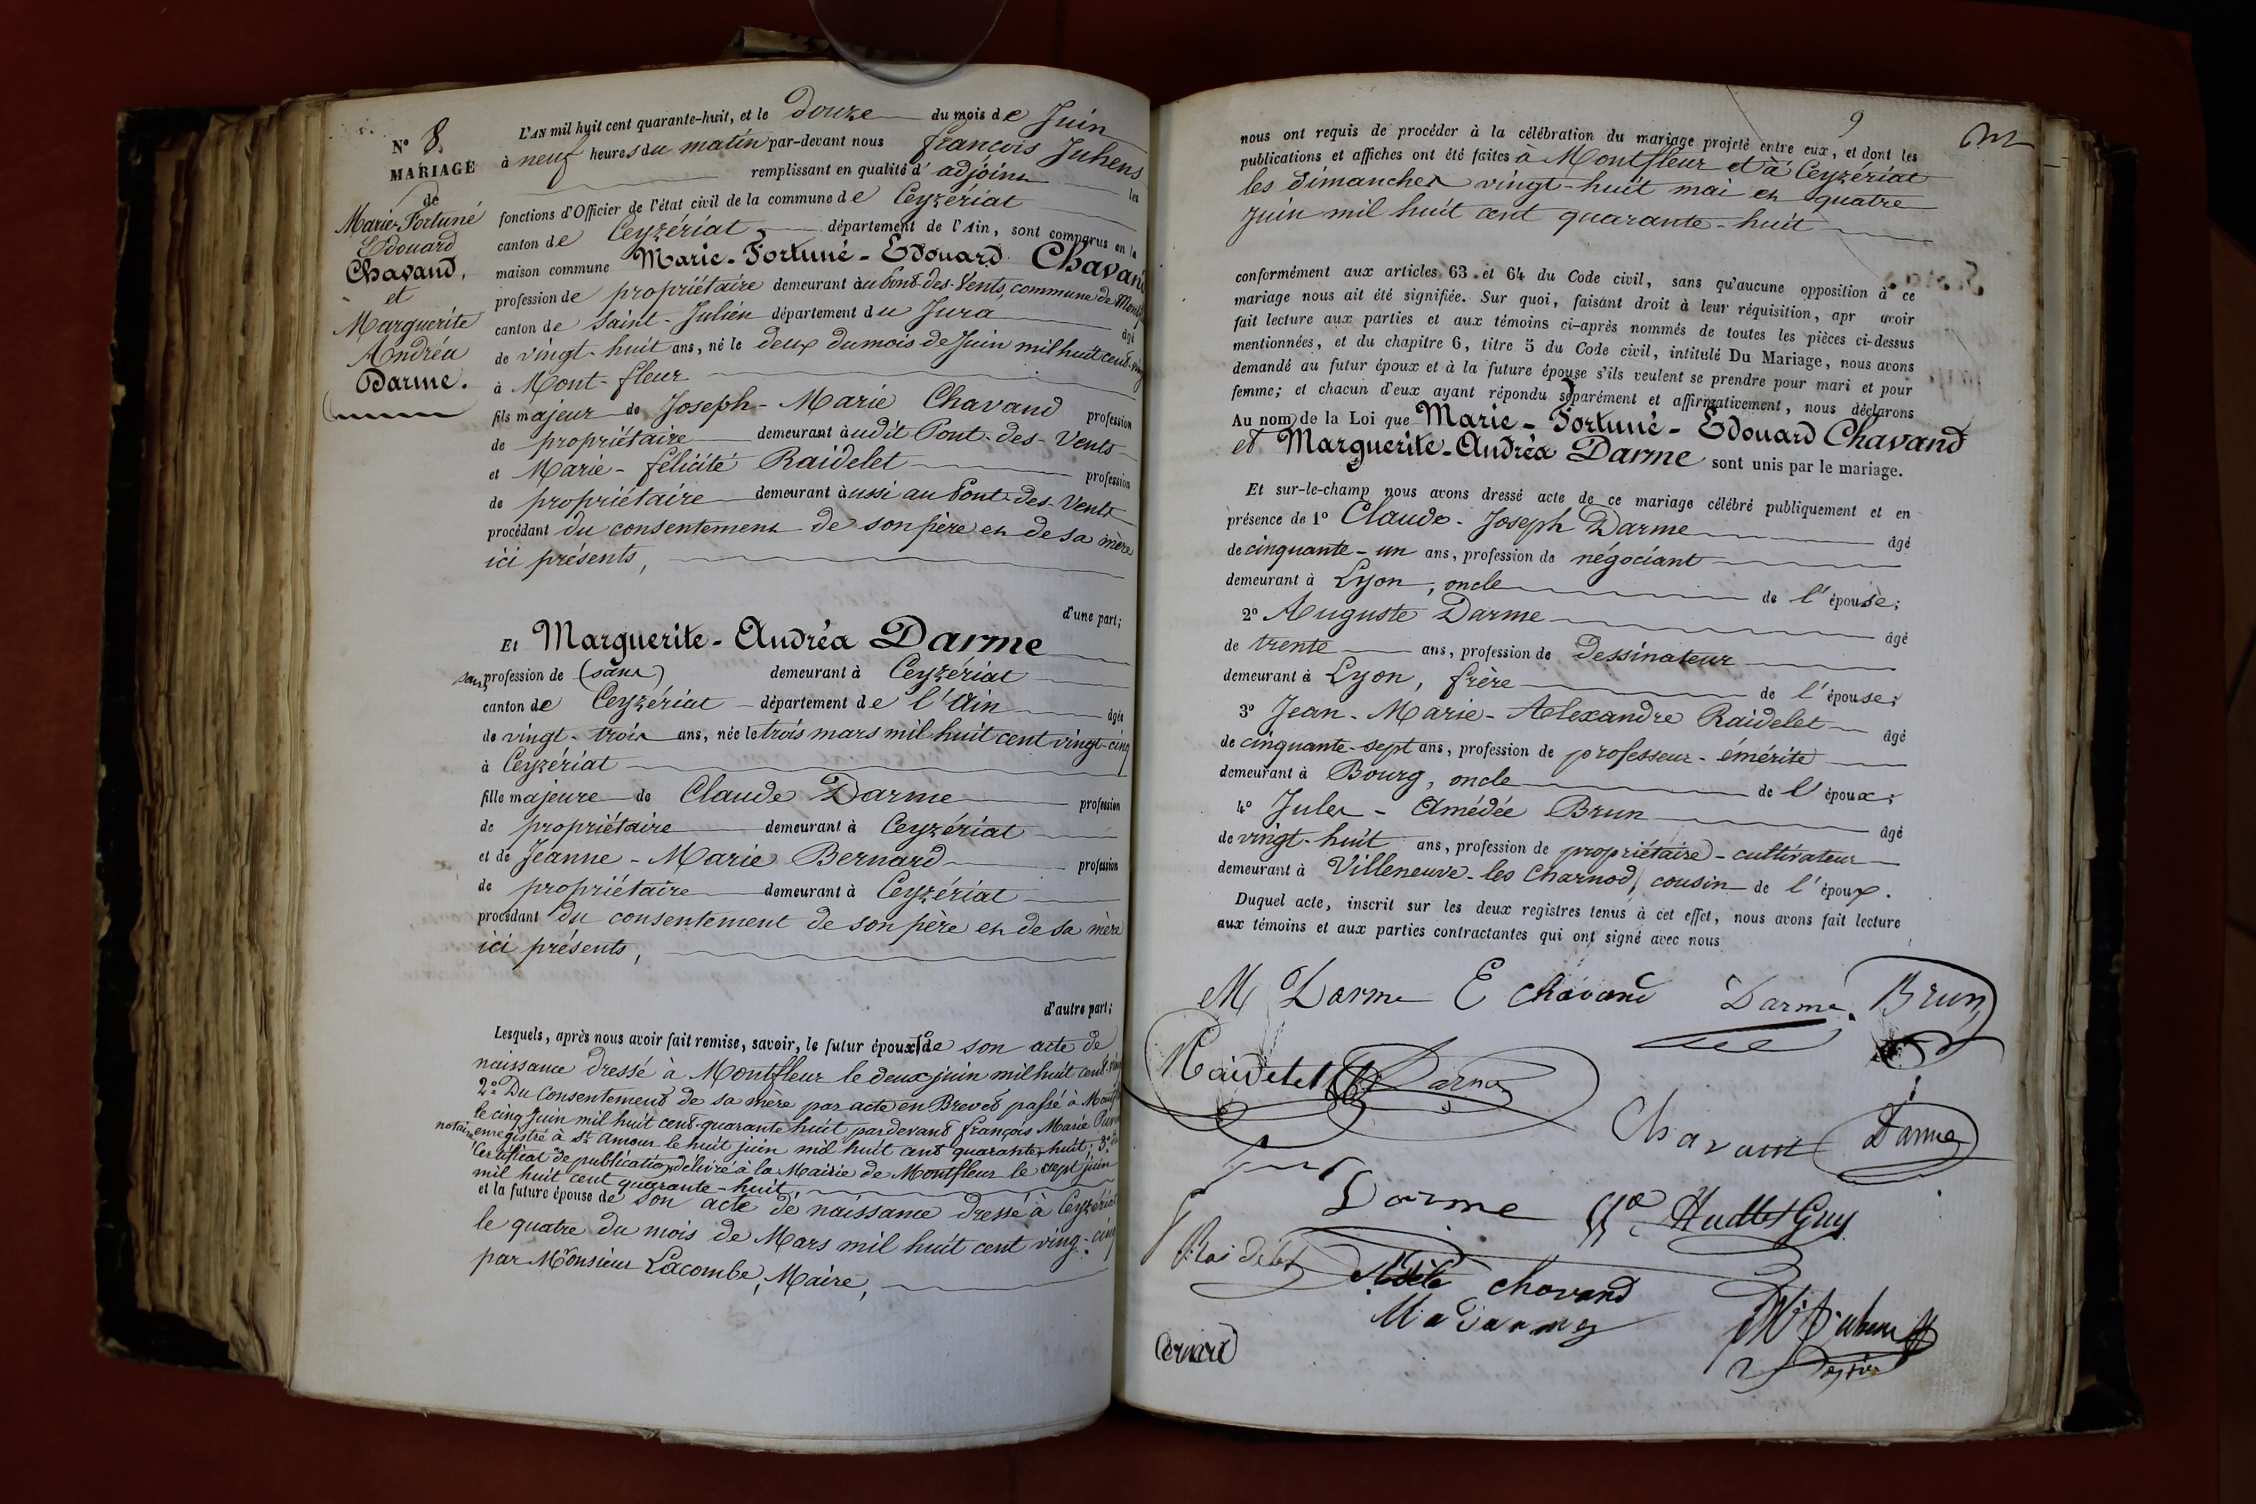 N° 8.
MARIAGE
de
Marie-Fortuné
Edouard
Chavand,
et
Marguerite
Andréa
Darme.
L'AN mil huit cent quarante-huit, et le douze du mois de Juin
à neuf heures du matin par-devant nous françois Juhens
remplissant en qualité d'adjoint les
fonctions d'Officier de l'état civil de la commune de Ceyzériat
canton de Ceyzériat département de l'Ain, sont comparus en la
maison commune Marie-Fortuné-Edouard Chavand
profession de propriétaire demeurant au Pont-des-Vents, commune de
canton de Saint-Julien département du Jura âgé
de vingt-huit ans, né le deux du mois de Juin mil huit cent
à Mont-fleur
fils majeur de Joseph-Marie Chavand profession
de propriétaire demeurant audit Pont-des-Vents
et Marie-félicité Raidelet profession
de propriétaire demeurant aussi au Pont-des-Vents
procédant du consentement de son père et de sa mère
ici présents,
d'une part;
Et Marguerite-Andréa Darme
sans profession de (sans) demeurant à Ceyzériat
canton de Ceyzériat département de l'Ain âgée
de vingt-trois ans, née le trois mars mil huit cent vingt-cinq
à Ceyzériat
fille majeure de Claude Darme profession
de propriétaire demeurant à Ceyzériat
et de Jeanne-Marie Bernard profession
de propriétaire demeurant à Ceyzériat
procédant du consentement de son père et de sa mère
ici présents,
d'autre part;
Lesquels, après nous avoir fait remise, savoir, le futur époux 1° de son acte de
naissance dressé à Montfleur le deux juin mil huit cent
2° Du consentement de sa mère par acte en Brevet passé à
le cinq Juin mil huit cent quarante huit pardevant françois Marie
notaire, enregistré à St Amour le huit juin mil huit cent quarante huit; 3°
Certificat de publication délivré à la Mairie de Montfleur le sept juin
mil huit cent quarante-huit,
et la future épouse de son acte de naissance dressé à Ceyzériat
le quatre du mois de Mars mil huit cent ving-cinq
par Monsieur Lacombe, Maire,
9
nous ont requis de procéder à la célébration du mariage projeté entre eux, et dont les
publications et affiches ont été faites à Montfleur et à Ceyzériat
les dimanches vingt-huit mai et quatre
juin mil huit cent quarante-huit
conformément aux articles 63 et 64 du Code civil, sans qu'aucune opposition à ce
mariage nous ait été signifiée. Sur quoi, faisant droit à leur réquisition, apr avoir
fait lecture aux parties et aux témoins ci-après nommés de toutes les pièces ci-dessus
mentionnées, et du chapitre 6, titre 5 du Code civil, intitulé Du Mariage, nous avons
demandé au futur époux et à la future épouse s'ils veulent se prendre pour mari et pour
femme; et chacun d'eux ayant répondu séparément et affirmativement, nous déclarons
Au nom de la Loi que Marie-Fortuné-Edouard Chavand
et Marguerite-Andréa Darme sont unis par le mariage.
Et sur-le-champ nous avons dressé acte de ce mariage célébré publiquement et en
présence de 1° Claude-Joseph Darme âgé
de cinquante-un ans, profession de négociant
demeurant à Lyon, oncle de l'épouse;
2° Auguste Darme âgé
de trente ans, profession de Dessinateur
demeurant à Lyon, frère de l'épouse;
3° Jean-Marie-Alexandre Raidelet âgé
de cinquante-sept ans, profession de professeur-émérite
demeurant à Bourg, oncle de l'époux;
4° Jules-Amédée Brun âgé
de vingt-huit ans, profession de propriétaire-cultivateur
demeurant à Villeneuve-les Charnod, cousin de l'époux.
Duquel acte, inscrit sur les deux registres tenus à cet effet, nous avons fait lecture
aux témoins et aux parties contractantes qui ont signé avec nous
M Darme E Chavand Darme Brun
Raidelet Darme
Chavant Darme
Darme Hudlet Guy
Raidelet Chavand